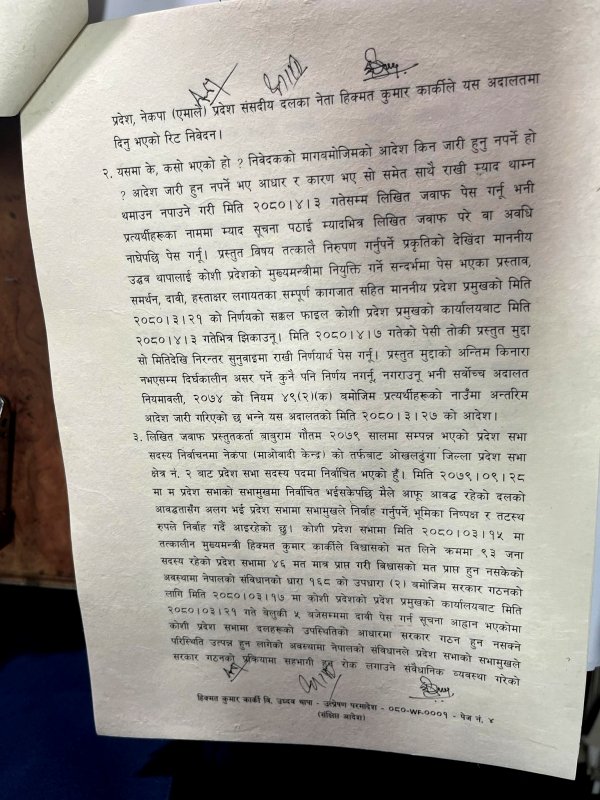 प्रदेश, नेकपा (एमाले) प्रदेश संसदीय दलका नेता हिक्मत कुमार कार्कीले यस अदालतमा
दिनु भएको रिट निवेदन।
२. यसमा के, कसो भएको हो ? निवेदकको मागबमोजिमको आदेश किन जारी हुनु नपर्ने हो
? आदेश जारी हुन नपर्ने भए आधार र कारण भए सो समेत साथै राखी म्याद थाम्न
थमाउन नपाउने गरी मिति २०८०।४।३ गतेसम्म लिखित जवाफ पेस गर्नू भनी
प्रत्यर्थीहरूका नाममा म्याद सूचना पठाई म्यादभित्र लिखित जवाफ परे वा अवधि
नाघेपछि पेस गर्नू। प्रस्तुत विषय तत्कालै निरुपण गर्नुपर्ने प्रकृतिको देखिंदा माननीय
उद्धव थापालाई कोशी प्रदेशको मुख्यमन्त्रीमा नियुक्ति गर्ने सन्दर्भमा पेस भएका प्रस्ताव,
समर्थन, दावी, हस्ताक्षर लगायतका सम्पूर्ण कागजात सहित माननीय प्रदेश प्रमुखको मिति
२०८०।३।२१ को निर्णयको सक्कल फाइल कोशी प्रदेश प्रमुखको कार्यालयबाट मिति
२०८०।४।३ गतेभित्र झिकाउनू। मिति २०८०।४।७ गतेको पेसी तोकी प्रस्तुत मुद्दा
सो मितिदेखि निरन्तर सुनुवाइमा राखी निर्णयार्थ पेस गर्नू। प्रस्तुत मुद्दाको अन्तिम किनारा
नभएसम्म दिर्घकालीन असर पर्ने कुनै पनि निर्णय नगर्नू, नगराउनू भनी सर्वोच्च अदालत
नियमावली, २०७४ को नियम ४९(२)(क) बमोजिम प्रत्यर्थीहरूको नाउँमा अन्तरिम
आदेश जारी गरिएको छ भन्ने यस अदालतको मिति २०८०।३।२७ को आदेश।
३. लिखित जवाफ प्रस्तुतकर्ता बाबुराम गौतम २०७९ सालमा सम्पन्न भएको प्रदेश सभा
सदस्य निर्वाचनमा नेकपा (माओवादी केन्द्र) को तर्फबाट ओखलढुंगा जिल्ला प्रदेश सभा
क्षेत्र नं. २ बाट प्रदेश सभा सदस्य पदमा निर्वाचित भएको हुँ। मिति २०७९।०९।२८
मा म प्रदेश सभाको सभामुखमा निर्वाचित भईसकेपछि मैले आफू आवद्ध रहेको दलको
आवद्धतासँग अलग भई प्रदेश सभामा सभामुखले निर्वाह गर्नुपर्ने भूमिका निष्पक्ष र तटस्थ
रुपले निर्वाह गर्दै आइरहेको छु। कोशी प्रदेश सभामा मिति २०८०।०३।१५ मा
तत्कालीन मुख्यमन्त्री हिक्मत कुमार कार्कीले विश्वासको मत लिने क्रममा ९३ जना
सदस्य रहेको प्रदेश सभामा ४६ मत मात्र प्राप्त गरी विश्वासको मत प्राप्त हुन नसकेको
अवस्थामा नेपालको संविधानको धारा १६८ को उपधारा (२) बमोजिम सरकार गठनको
लागि मिति २०८०।०३।१७ मा कोशी प्रदेशको प्रदेश प्रमुखको कार्यालयबाट मिति
२०८०।०३।२१ गते बेलुकी ५ बजेसम्ममा दावी पेस गर्न सूचना आह्वान भएकोमा
कोशी प्रदेश सभामा दलहरूको उपस्थितिको आधारमा सरकार गठन हुन नसक्ने
परिस्थिति उत्पन्न हुन लागेको अवस्थामा नेपालको संविधानले प्रदेश सभाको सभामुखले
सरकार गठनको प्रक्रियामा सहभागी हुन रोक लगाउने संवैधानिक व्यवस्था गरेको
हिक्मत कुमार कार्की वि. उध्दव थापा - उत्प्रेषण परमादेश - ०८०-WF-०००१ - पेज नं. ४
(संक्षिप्त आदेश)